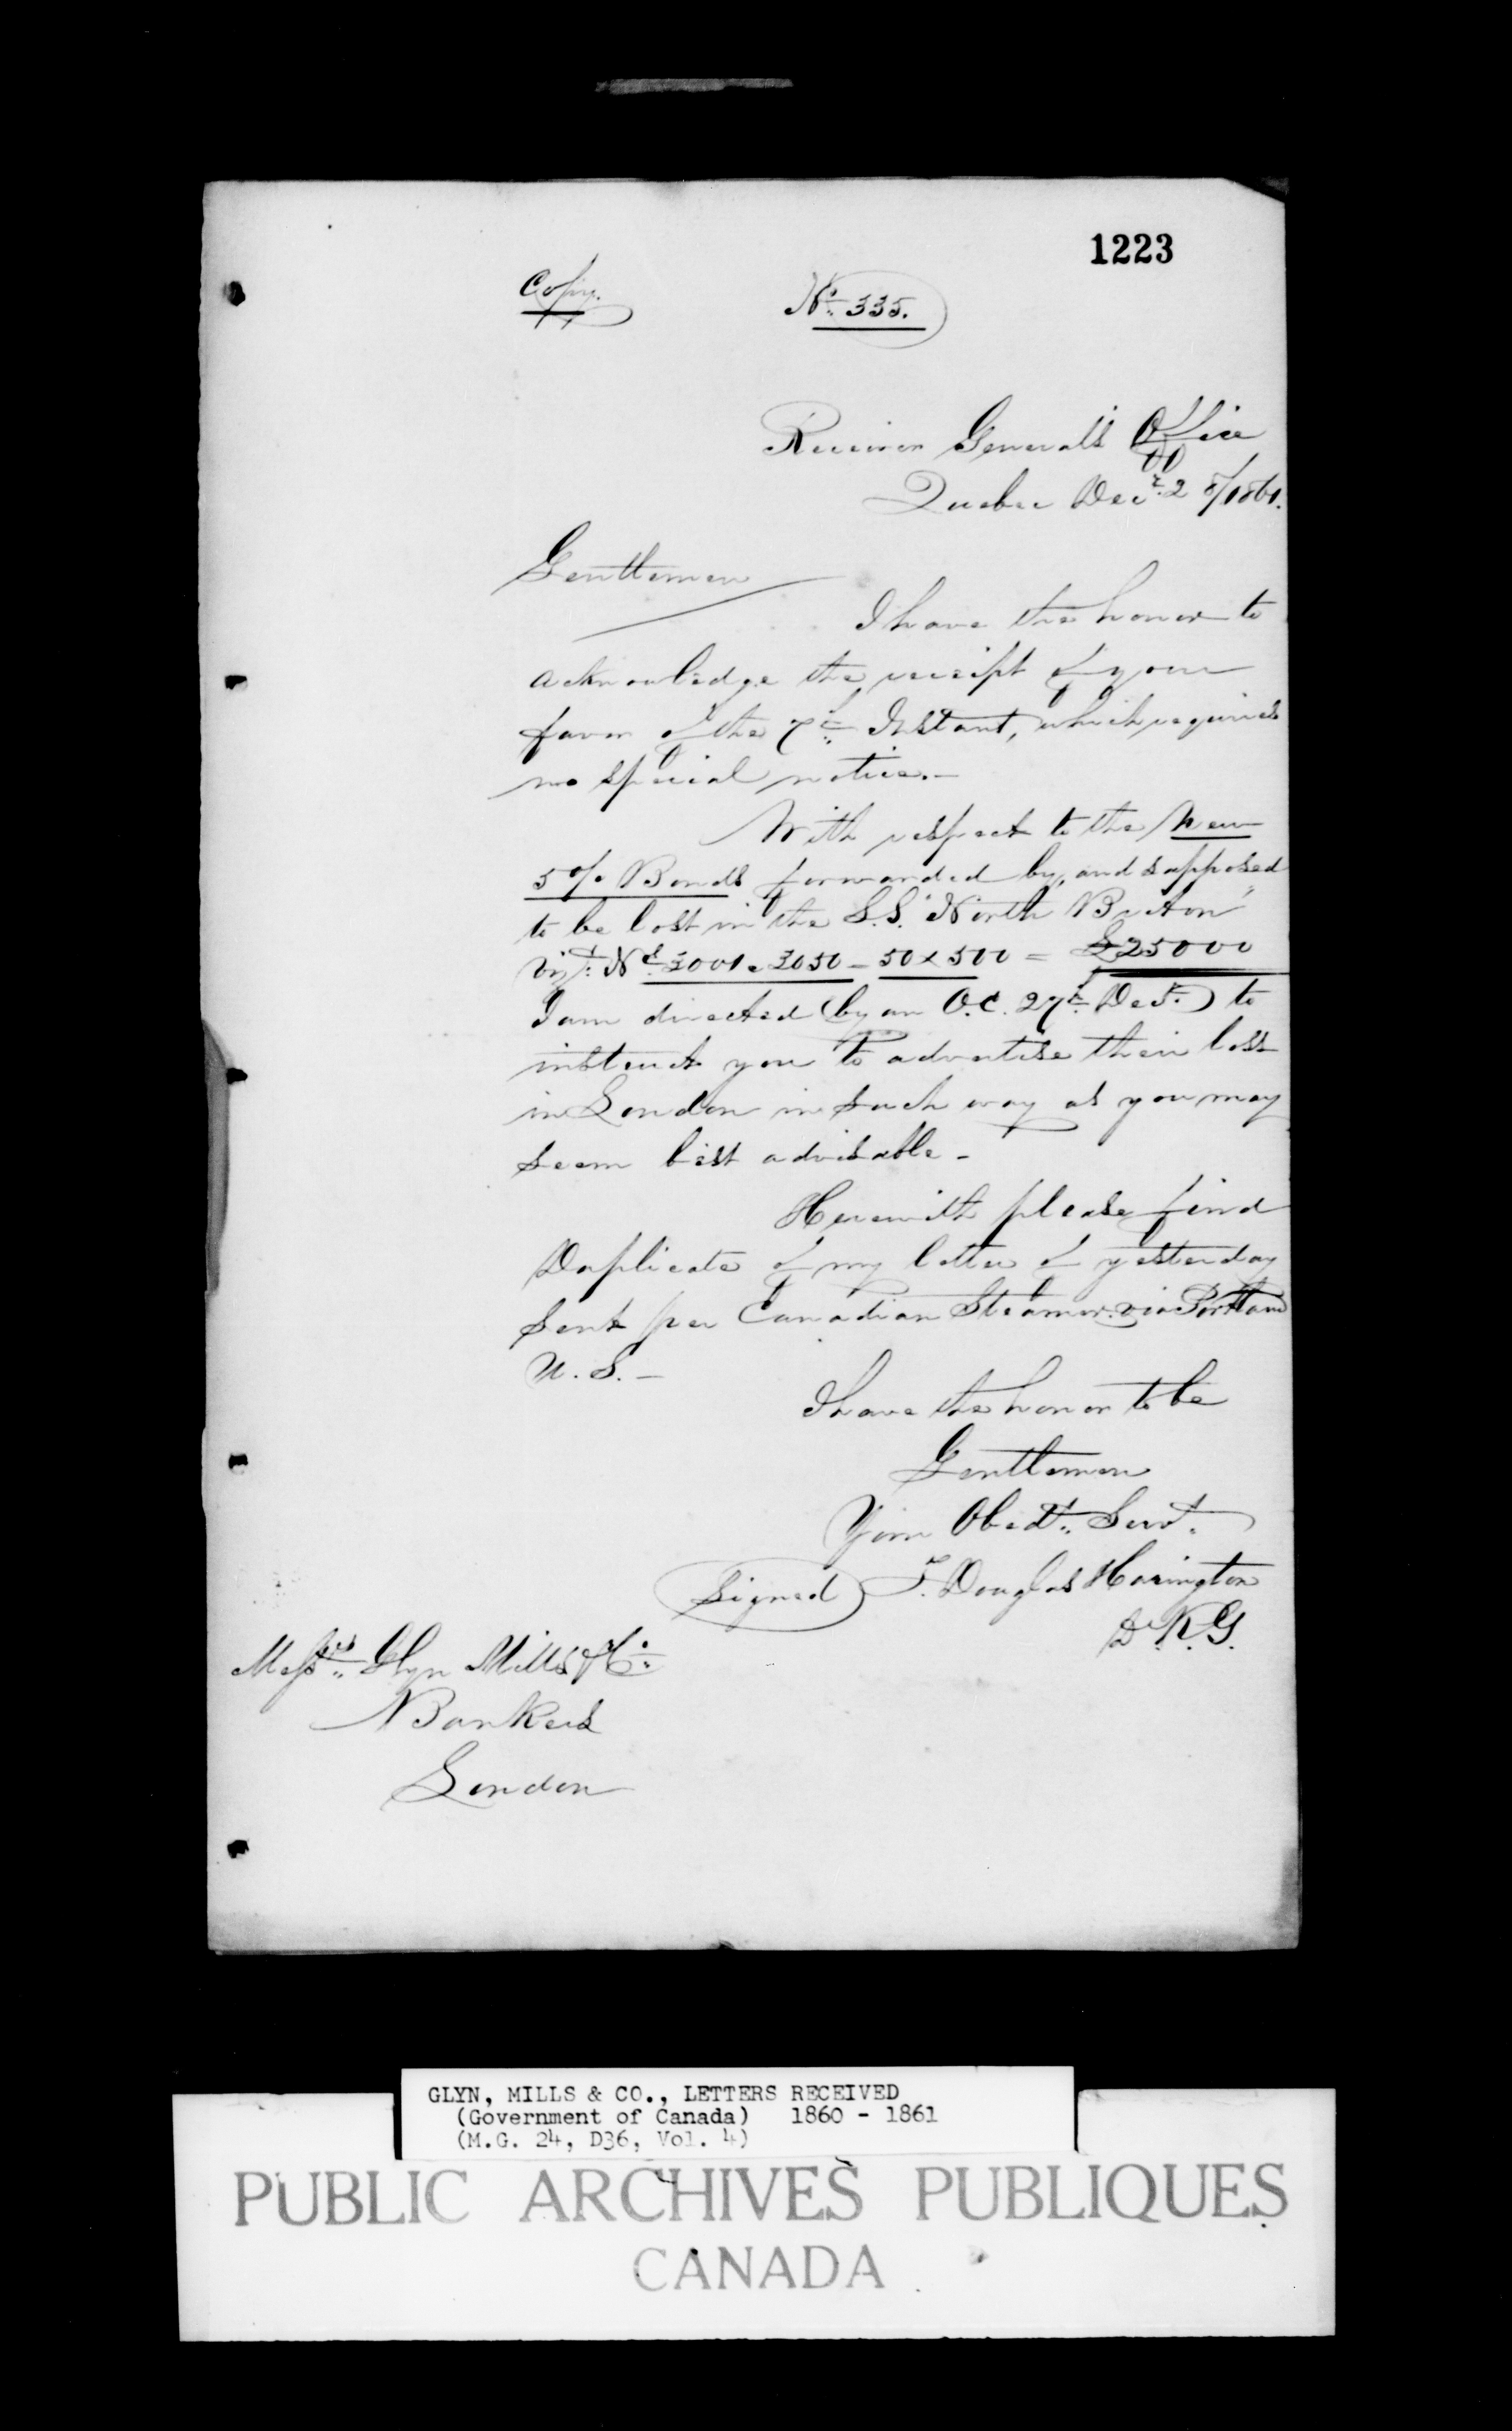 1223
Copy.
No. 335.
Receiver General's Office
Quebec Decr. 28/1861.
Gentlemen
I have the honor to
acknowledge the receipt of your
favor of the 7th Instant, which requires
no special notice.—
With respect to the New
5 % Bonds forwarded by, and supposed
to be lost in the S.S. "North Briton"
Vizt: Nos. 3001 a 3050 — 50 x 500 = £25000
I am directed (by an O.C. 27th Decr.) to
instruct you to advertise their loss
in London in such way as you may
seem best advisable —
Herewith please find
Duplicate of my letter of yesterday
sent per Canadian Steamer via Portland
U.S. —
I have the honor to be
Gentlemen
Your Obedt. Servt.
Signed) T. Douglas Harington
D.R.G.
Messrs. Glyn Mills & Co.
Bankers
London
GLYN, MILLS & CO., LETTERS RECEIVED
(Government of Canada) 1860 - 1861
(M.G. 24, D36, Vol. 4)
PUBLIC ARCHIVES PUBLIQUES
CANADA